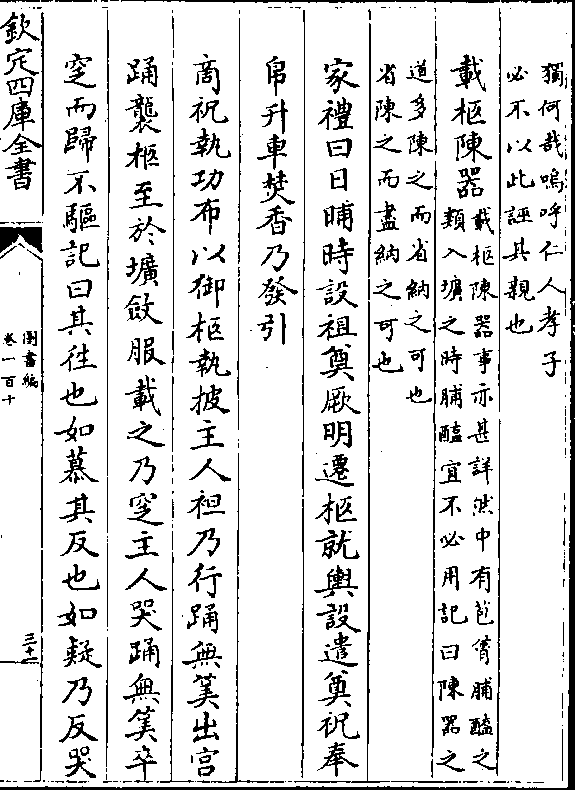 獨何哉嗚呼仁人孝子
必不以此誣其親也
載柩陳器
載柩陳器事亦甚詳然中有苞筲脯醢之
類入壙之時脯醢宜不必用記曰陳器之
道多陳之而省納之可也
省陳之而盡納之可也
家禮曰日晡時設祖奠厥明遷柩就輿設遣奠祝奉
帛升車焚香乃發引
商祝執功布以御柩執披主人袒乃行踊無筭出宫
踊襲柩至於壙斂服載之乃窆主人哭踊無筭卒
窆而歸不驅記曰其往也如慕其反也如疑乃反哭
欽定四庫全書
圖書編
卷一百十
三十一